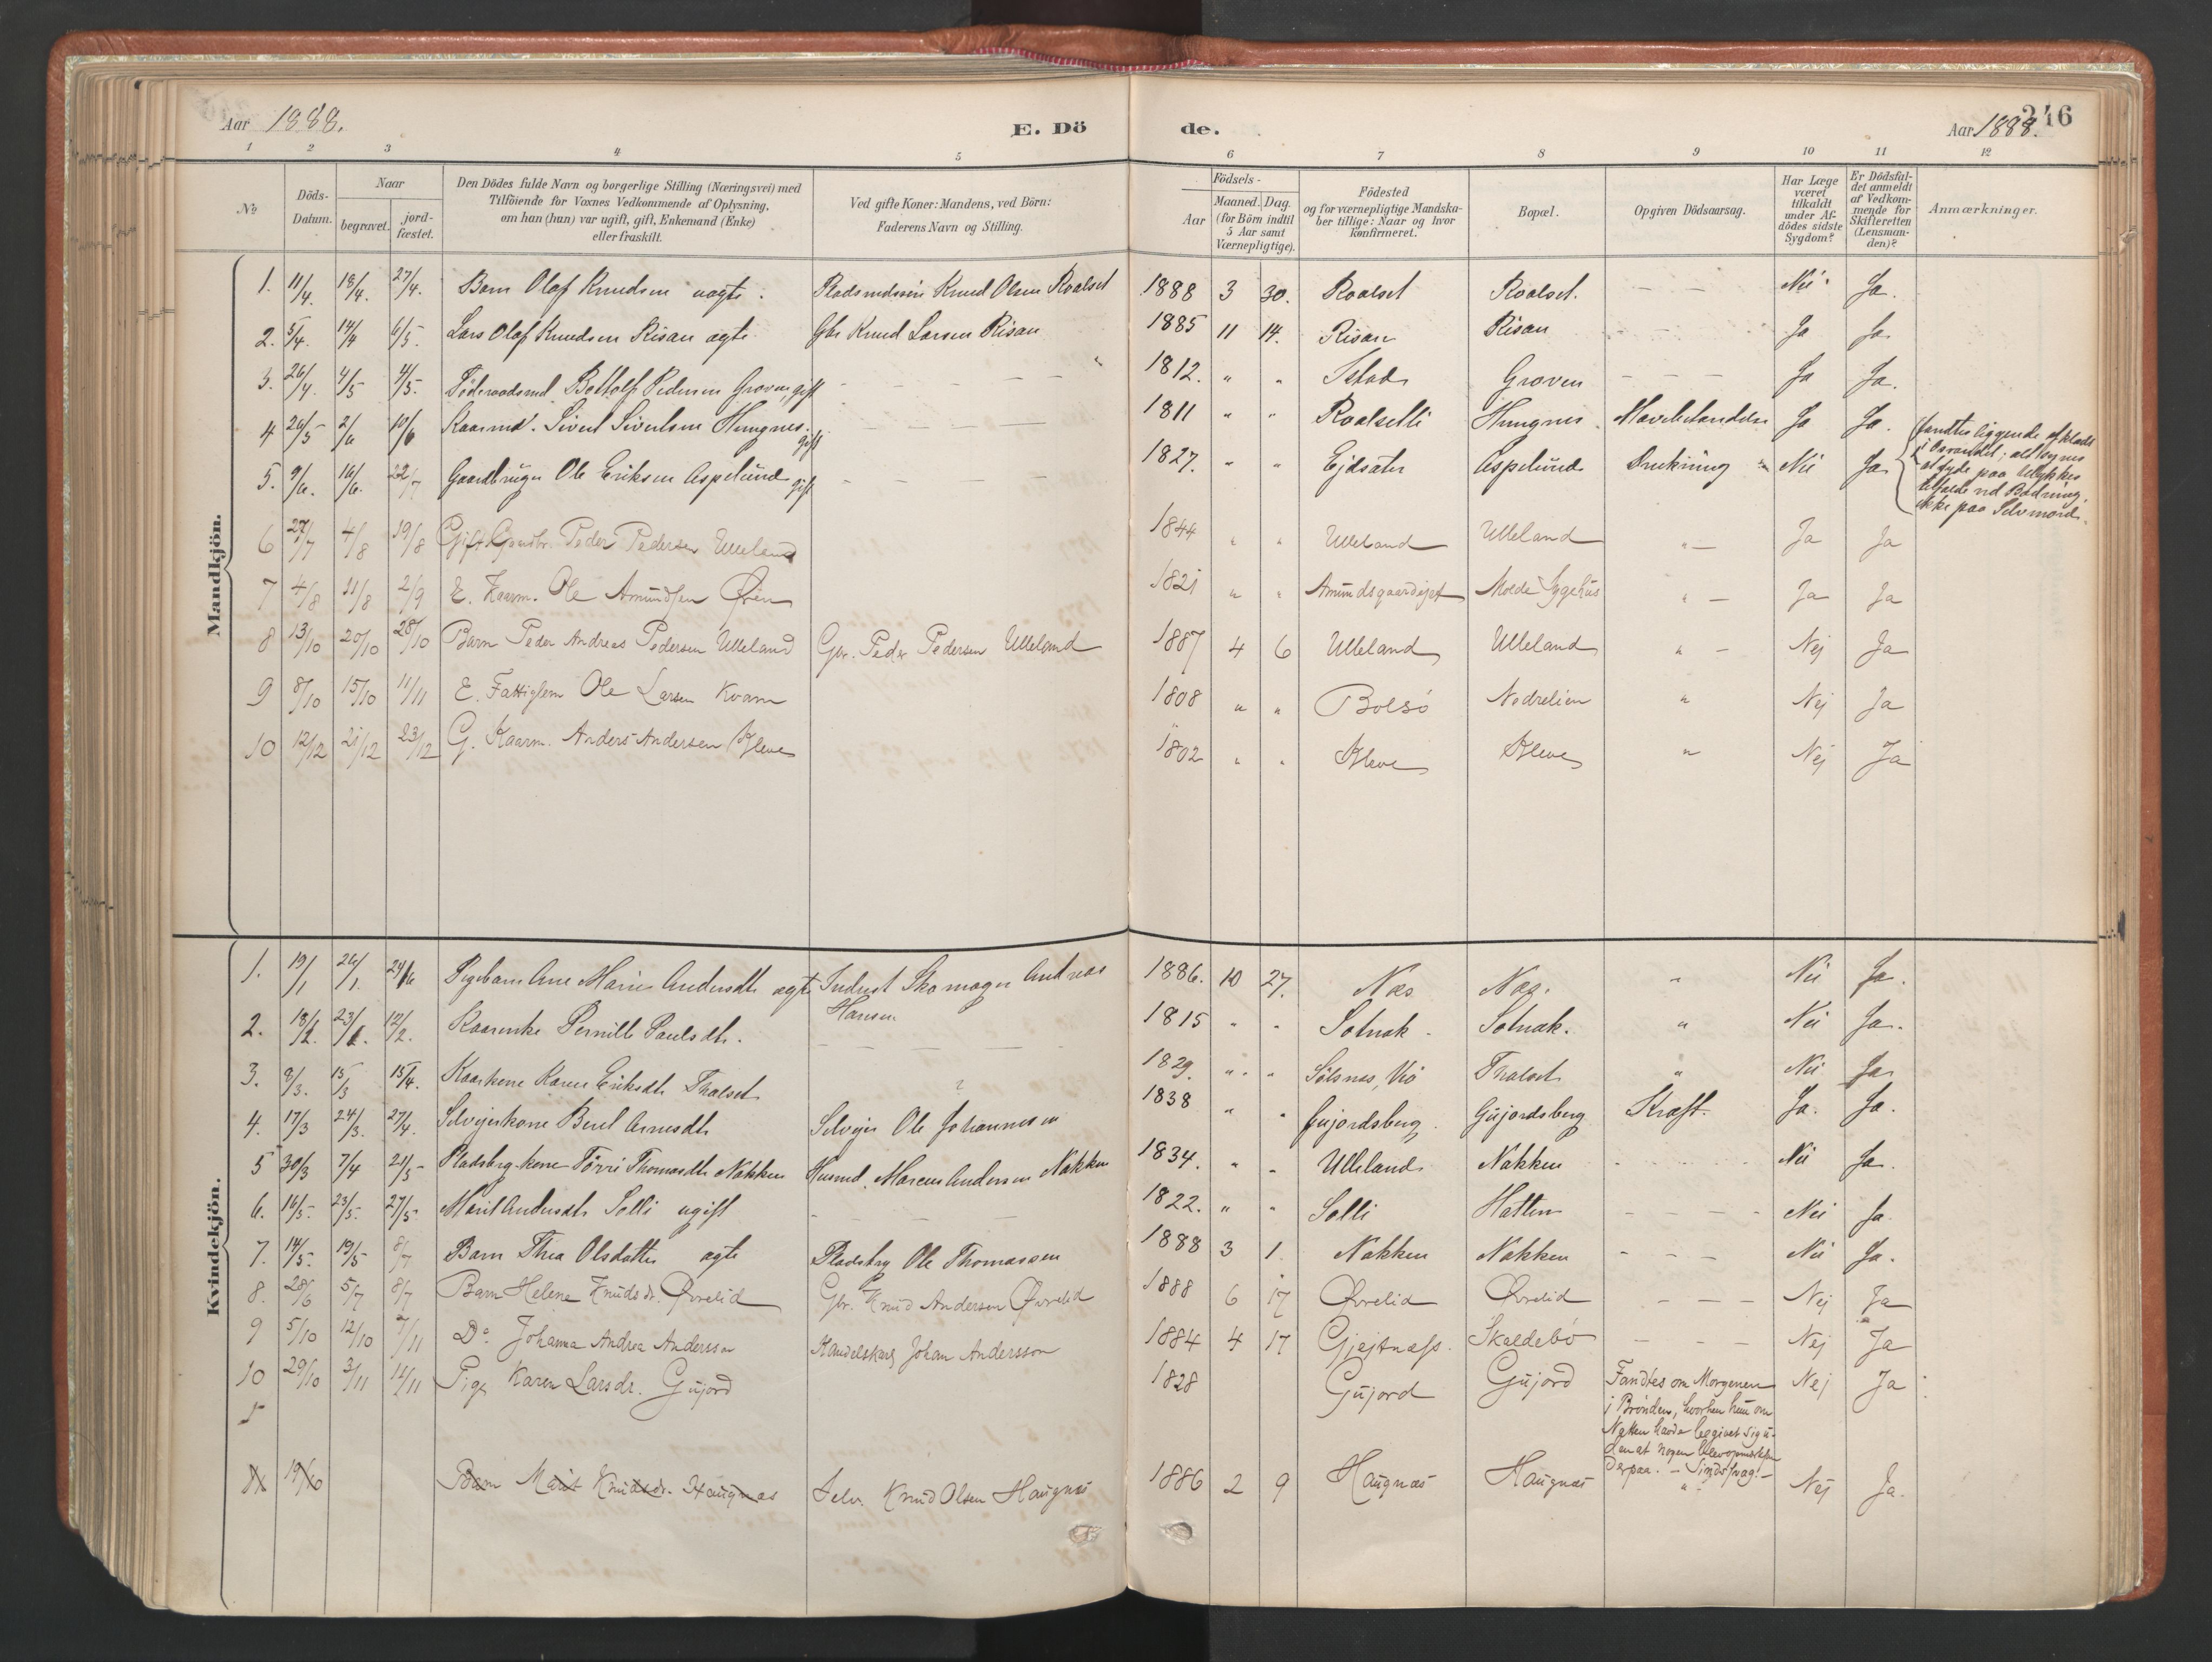 Aar 1888.
E. Dö
de.
Aar 1888.
246
1 2 3 4 5 6 7 8 9 10 11 12
No
Döds-
Datum.
Naar
begravet.
jord-
fæstet.
Den Dödes fulde Navn og borgerlige Stilling (Næringsvei) med
Tilföiende for Voxnes Vedkommende af Oplysning,
om han (hun) var ugift, gift, Enkemand (Enke)
eller fraskilt.
Ved gifte Koner: Mandens, ved Börn:
Faderens Navn og Stilling.
Födsels-
Aar
Maaned. Dag.
(for Börn indtil
5 Aar samt
Værnepligtige).
Födested
og for værnepligtige Mandska-
ber tillige: Naar og hvor
konfirmeret.
Bopæl.
Opgiven Dödsaarsag.
Har Læge
været
tilkaldt
under Af-
dödes sidste
Sygdom?
Er Dödsfal-
det anmeldt
af Vedkom-
mende for
Skifteretten
(Lensman-
den)?
Anmærkninger.
Mandkjön.
1. 11/4. 18/4. 27/4. Barn Olaf Knudsen uægte. Knud Olsen Roalset 1888 3 30. Roalset Roalset. — — Nei Ja.
2. 5/4. 14/4 6/5. Lars Olaf Knudsen Risan ægte Gbr Knud Larsen Risan 1885 11 14. Risan Risan Ja Ja
3. 26/4. 4/5 4/5. Föderaadsmd. Bottolf Pedersen Groven, gift — — — — 1812. " " Istad Groven — — — Ja Ja.
4 26/5 2/6 10/6 Kaarmd. Sivert Sivertsen Hungnes. gift — — — — 1811 " " Roalsetli Hungnes. Ja Ja.
5. 9/6. 16/6. 22/7 Gaardbruger Ole Eriksen Aspelund gift — — — 1827. " " Ejdsæter Aspelund Drukning Nei Ja
fandtes liggende afklædt
i Osvandet; alt synes
at tyde paa Ulykkes
tilfælde ved Badning,
ikke paa Selvmord.
6 27/7 4/8 19/8 Gift Gaardbr. Peder Pedersen Ulleland 1844 " " Ulleland Ulleland " — Ja Ja
7 4/8 11/8 2/9 E. Kaarm. Ole Amundsen Øren 1821 " " Amundsgaardejet Molde Sygehus " — Ja Ja
8 13/10 20/10 28/10 Barn Peder Andreas Pedersen Ulleland Gbr. Peder Pedersen Ulleland 1887 4 6 Ulleland Ulleland " — Nej Ja
9 8/10 15/10 11/11 E. Fattiglem Ole Larsen Kvam 1808 " " Bolsö Nedrelien " Nej Ja
10 12/12 21/12 23/12 G. Kaarm. Anders Andersen Kleve 1802 " " Kleve Kleve " Nej Ja
Kvindekjön.
1. 19/1 26/1. 24/6 Pigebarn Ane Marie Andersdtr ægte Inderst Skomager Andreas
Hansen 1886. 10 27. Næs Næs. " Nei Ja.
2. 18/2. 23/2. 12/2. Kaarenke Pernille Paulsdtr. — — — — 1815 " " Solnak. Solnak. " Nei Ja.
3. 8/3. 15/3 15/4. Kaarkone Karen Eriksdtr Thalset ? 1829. " " Sölsnes, Veö Thalset " Nei Ja
4. 17/3 24/3. 27/4. Selveierkone Beret Arnesdtr Selveier Ole Johannesen 1838 " " Gujordsberg. Gujordsberg Kræft. Ja. Ja.
5 30/3 7/4 21/5 Pladsbrg. kone Törri Thomasdtr Nakken Husmd. Marcus Andersen Nakken 1834. " " Ulleland Nakken Nei Ja.
6. 16/5. 23/5. 27/5. Marit Andersdtr Solli ugift — — — 1822. " " Solli Hatten — — — — Nei Ja
7. 14/5. 19/5 8/7 Barn Thea Olsdatter ægte Pladsbrg Ole Thomassen 1888 3 1. Nakken Nakken — — — Nei Ja.
8. 28/6 5/7 8/7 Barn Helene Knudsdr. Øvrelid Gbr. Knud Andersen Øvrelid 1888 6 17 Øvrelid Øvrelid — — — Nej Ja
9 5/10 12/10 7/11 Do Johanna Andrea Andersson Handelskarl Johan Andersson 1884 4 17 Gjejtnæss. Skaldebö — — — Nej Ja
10 29/10 3/11 11/11 Pige Karen Larsdr. Gujord 1828 Gujord Gujord Fandtes om Morgenen
i Brönden, hvorhen hun om
Natten havde begivet sig u-
den at nogen blev opmærksom
derpaa. — Sindssvag. — Nej Ja
Barn Marit Knudsdr. Haugnæs Selv. Knud Olsen Haugnæs 1886 2 9 Haugnæs Haugnæs " Nej Ja.